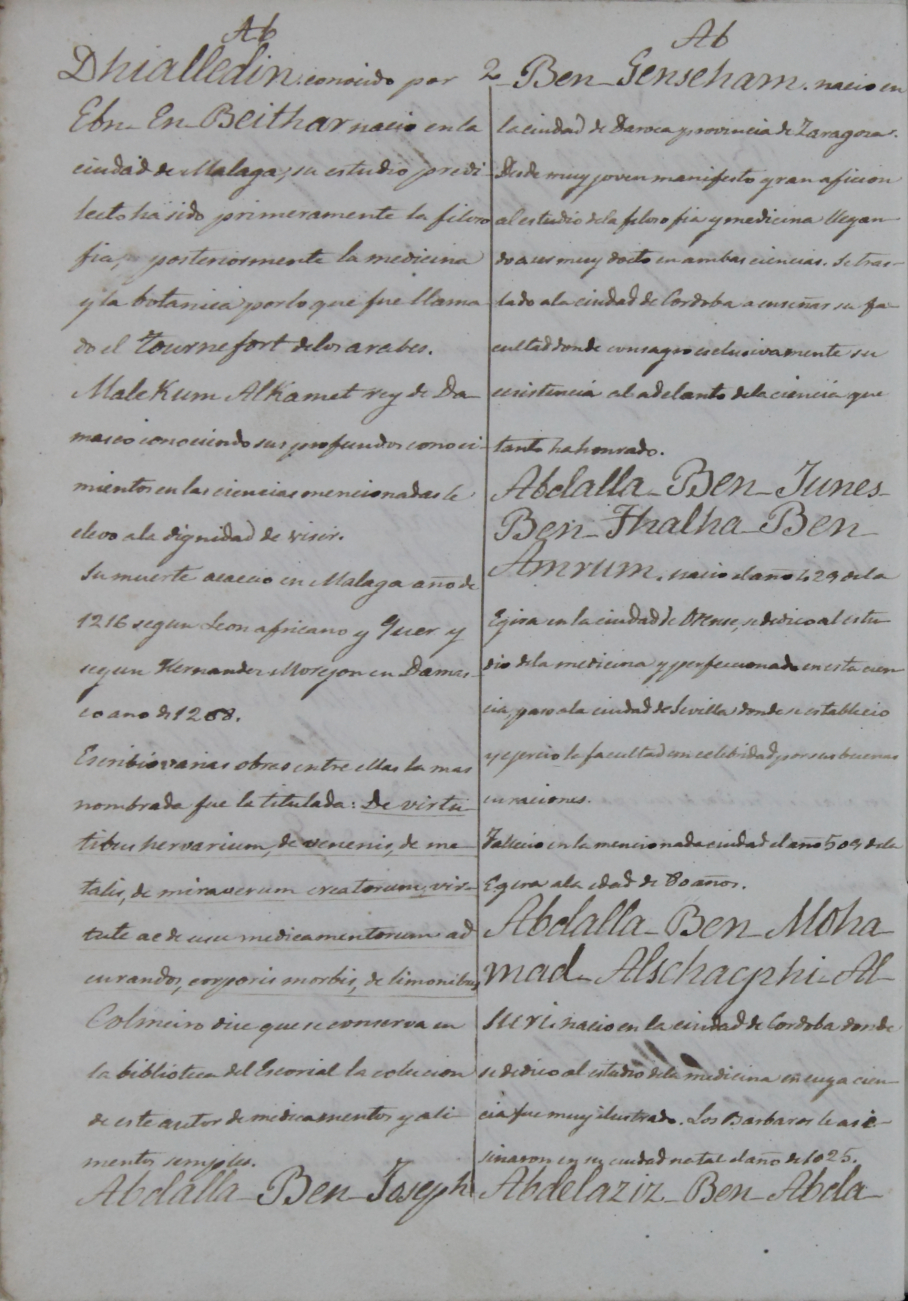 Ab
Dhialledin. conocido por
Ebn-En-Beithar nacio en la
ciudad de Malaga; su estudio predi-
lecto ha sido primeramente la filoso
fia, y posteriormente la medicina
y la botanica por lo que fue llama
do el tournefort delos arabes.
Malekum Alkamet rey de Da-
masco conociendo sus profundos conoci-
mientos en las ciencias mencionadas le
elevo ala dignidad de visir.
Su muerte acaecio en Malaga año de
1216 segun Leon africano y Quer y
segun Hernandez Morejon en Damas-
co año de 1268.
Escribio varias obras entre ellas la mas
nombrada fue la titulada: De virtu-
tibus hervarium, de venenis, de me-
talis, de miraverum creatorum, vir-
tute ac de usu medicamentorum ad
curandos, corporis morbis, de limonibus
Colmeiro dice que se conserva en
la biblioteca del Escorial la colecion
de este autor de medicamentos y ali-
mentos simples.
Abdalla-Ben-Joseph
2
Ab
-Ben-Genseham. nacio en
la ciudad de Daroca provincia de Zaragoza.
Desde muy joven manifesto gran aficion
al estudio dela filosofia y medicina llegan-
do a ser muy docto en ambas ciencias. Se tras-
lado ala ciudad de Cordoba a enseñar su fa-
cultad donde consagro esclusivamente su
ecsistencia al adelanto dela ciencia que
tanto ha honrado.
Abdalla-Ben-Junes-
Ben-Thalha-Ben-
Amrum. nacio el año 429 de la
Egira en la ciudad de Orense, se dedico al estu-
dio de la medicina y perfeccionado en esta cien-
cia, paso ala ciudad de Sevilla donde se establecio
y ejercio la facultad con celibidad por sus buenas
curaciones.
Fallecio en la mencionada ciudad el año 509 dela
Egira ala edad de 80 años.
Abdalla-Ben-Moha
mad-Alschacphi-Al-
suri. nacio en la ciudad de Cordoba donde
se dedico al estudio dela medicina en cuya cien-
cia fue muy ilustrado. Los Barbaros le ase-
sinaron en su ciudad natal el año de 1025.
Abdelaziz-Ben-Abda-